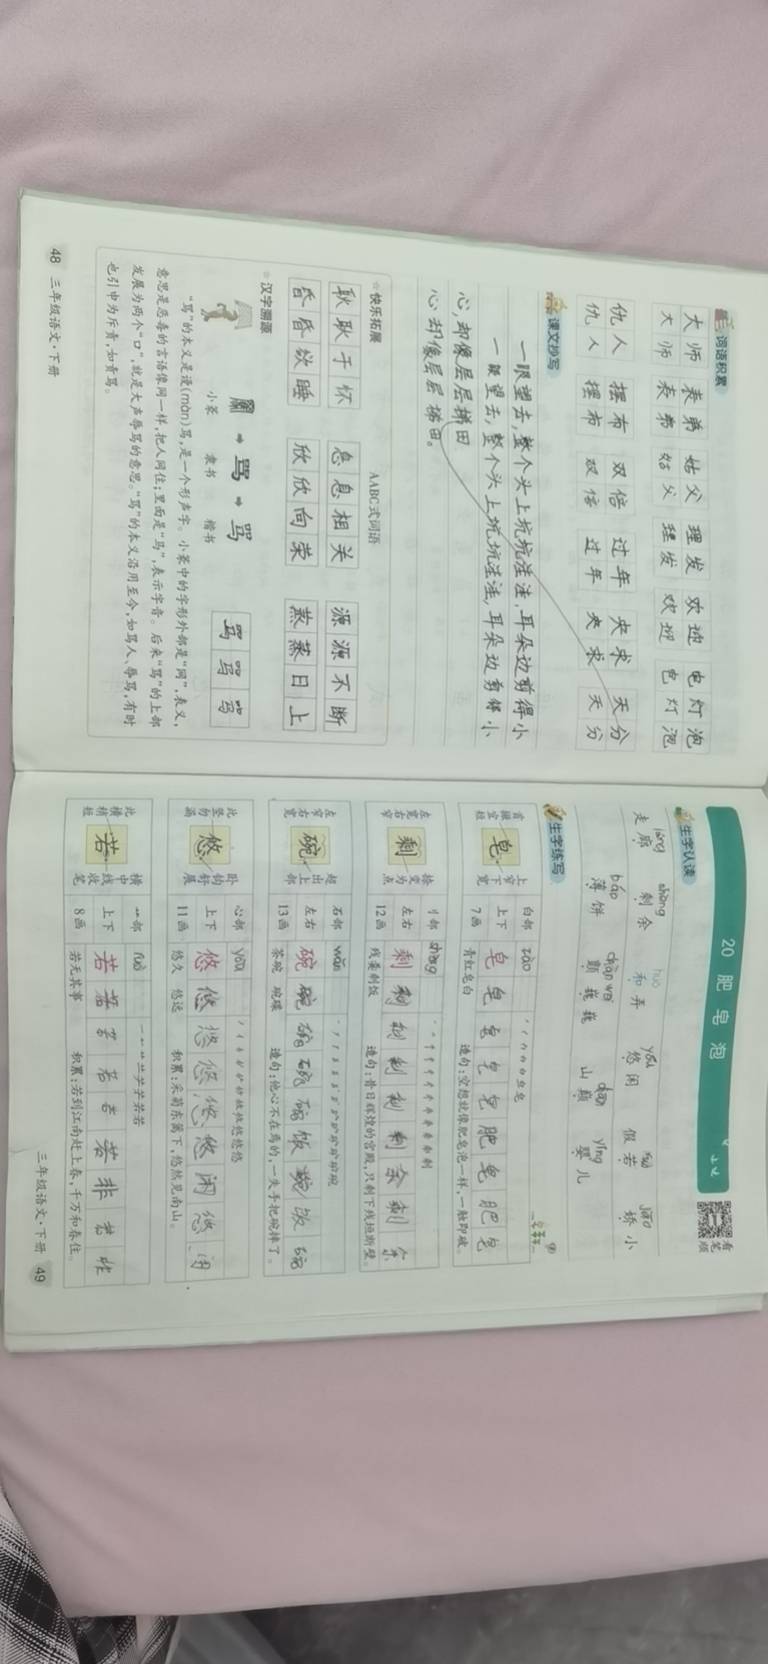 词语积累
大师 表弟 姑父 理发 欢迎 电灯泡
大师 表弟 姑父 理发 欢迎 电灯泡
仇人 摆布 双倍 过年 央求 天分
仇人 摆布 双倍 过年 央求 天分
课文抄写
一眼望去,整个头上坑坑洼洼,耳朵边剪得小
一眼望去,整个头上坑坑洼洼,耳朵边剪得小
心,却像层层梯田
心,却像层层梯田。
快乐拓展
AABC式词语
耿耿于怀 息息相关 源源不断
昏昏欲睡 欣欣向荣 蒸蒸日上
汉字溯源
骂
小篆 隶书 楷书
骂骂骂
“骂”的本义是谩(màn)骂,是一个形声字。小篆中的字形外部是“网”,表义,
意思是恶毒的言语像网一样,把人网住;里面是“马”,表示字音。后来“骂”的上部
发展为两个“口”,就是大声辱骂的意思。“骂”的本义沿用至今,如骂人、辱骂,有时
也引申为斥责,如责骂。
48 三年级语文·下册
20 肥皂泡
看笔顺
生字认读
láng shèng huò yōu ruò jiāo
走廊 剩余 和弄 悠闲 假若 娇小
báo chàn wēi diān yīng
薄饼 颤巍巍 山巅 婴儿
生字练写
皂
上窄下宽
白部 zào
上下
7画
皂 皂 皂 皂 皂 肥 皂 肥 皂
青红皂白 造句:空想就像肥皂泡一样,一触即破。
剩
左宽右窄
捺变为点
刂部 shèng
左右
12画
剩 剩 剩 剩 剩 剩 余 剩 余
残羹剩饭 造句:昔日辉煌的宫殿,只剩下残垣断壁。
碗
左窄右宽
超出上部
石部 wǎn
左右
13画
茶碗 碗碟 造句:他心不在焉的,一失手把碗摔了。
悠
此竖勿漏
卧钩舒展
心部 yōu
上下
11画
悠 悠 悠 悠 悠 悠 闲 悠 闲
悠久 悠远 积累:采菊东篱下,悠然见南山。
若
此横稍短
横中线收笔
艹部 ruò
上下
8画
若 若 若 若 若 若 非 若 非
若无其事 积累:若到江南赶上春,千万和春住。
三年级语文·下册 49